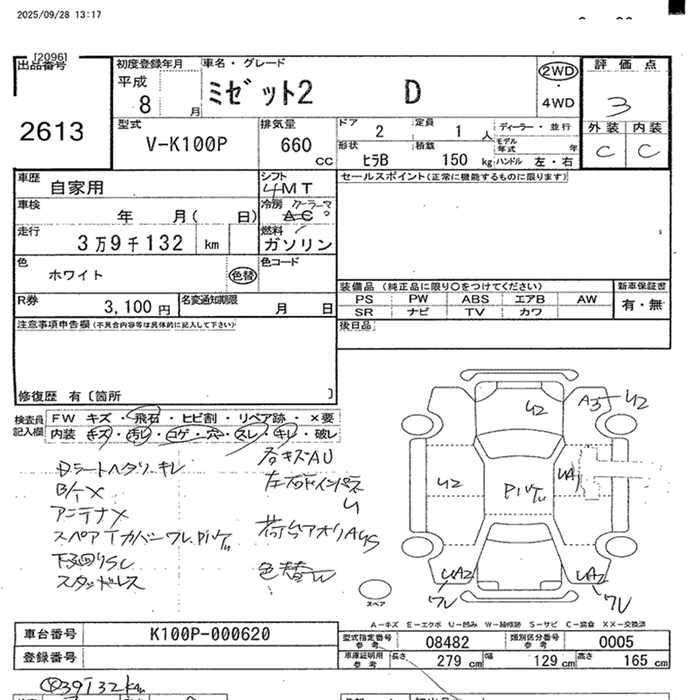 2025/09/28 13:17
[2096]
出品番号
2613
初度登録年月
平成
8 月
車名・グレード
ミゼット2 D
2WD
・
4WD
評価点
3
外装 内装
C C
型式
V-K100P
排気量
660
cc
ドア
2
定員
1 人
ディーラー・並行
モデル
年式 年
形状
ヒラB
積載
150 kg
ハンドル 左・右
車歴
自家用
シフト
4MT
セールスポイント(正常に機能するものに限ります)
車検
年 月( 日)
冷房 クーラー
AC
走行
3万9千132 km
燃料
ガソリン
色
ホワイト
色替
色コード
装備品 (純正品に限り○をつけてください)
PS PW ABS エアB AW
SR ナビ TV カワ
新車保証書
有・無
R券
3,100 円
名変通知期限
月 日
後日品
注意事項申告欄(不具合内容等は具体的に記入して下さい)
修復歴 有〔箇所 〕
検査員
記入欄
FW キズ・飛石・ヒビ割・リペア跡・×要
内装 キズ・汚レ・コゲ・穴・スレ・キレ・破レ
Dシートヘタリ、キレ
アンテナ×
下廻りSC
スタッドレス
色替W
U2
A3
U2
U2
UA1
UA2
UA2
スペア
A－キズ E－エクボ U－凹み W－補修跡 S－サビ C－腐食 XX－交換済
車台番号
K100P-000620
登録番号
型式指定番号
参考
08482
類別区分番号
参考
0005
車庫証明用
参考
長さ
279 cm
幅
129 cm
高さ
165 cm
39132km